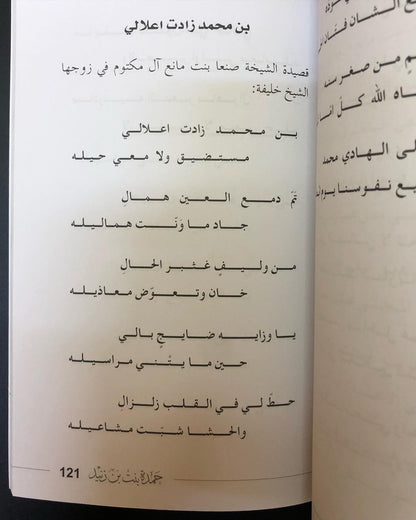 بن محمد زادت اعلالي
قصيدة الشيخة صنعا بنت مانع آل مكتوم في زوجها
الشيخ خليفة:
بن محمد زادت اعلالي
مستضيق ولا معي حيله
تم دمع العين همال
جاد ما ونت هماليله
من وليف غثبر الحال
خان وتعوض معاذيله
يا وزايه ضايج بالي
حين ما يتني مراسيله
حط لي في القلب زلزال
والحشا شبت مشاعيله
حمدة بنت بن زنيد
121
ع الشان فتان
م من صغر سنه
اه الله كل
لى الهادي محمد
يع نفوسنا يوم